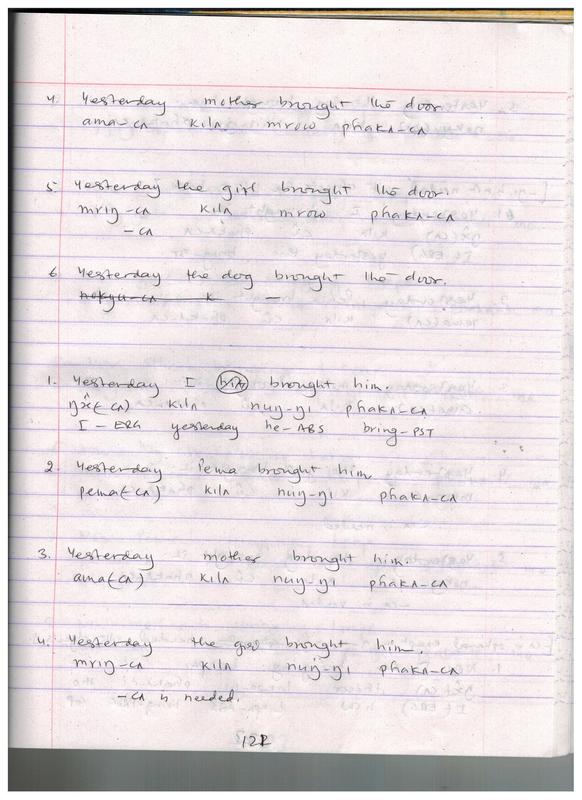 4. Yesterday mother brought the door.
ama-cʌ kilʌ mrow phakʌ-cʌ
5 Yesterday the girl brought the door.
mriŋ-cʌ kilʌ mrow phakʌ-cʌ
-cʌ
6 Yesterday the dog brought the door.
nokyu-cʌ k —
1. Yesterday I hit brought him.
ŋʌ̂(-cʌ) kilʌ nuŋ-ŋi phakʌ-cʌ
I-ERG yesterday he-ABS bring-PST
2. Yesterday Pema brought him.
pema(-cʌ) kilʌ nuŋ-ŋi phakʌ-cʌ
3. Yesterday mother brought him.
ama(-cʌ) kilʌ nuŋ-ŋi phakʌ-cʌ
4. Yesterday the girl brought him.
mriŋ-cʌ kilʌ nuŋ-ŋi phakʌ-cʌ
-cʌ is needed.
122